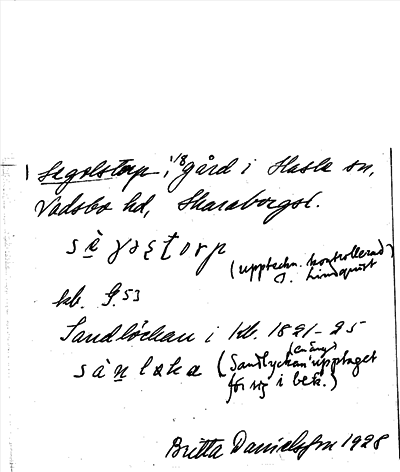 Segolstorp, 1/8 gård i Hasle sn,
Vadsbo hd, Skaraborgsl.
(upptechn. kontrollerad
J. Lindquist
kb. S. 53
Sandlöckan i kb. 1821-25
(en äng)
(Sandlyckan upptaget
för sig i bek.)
Britta Danielsson 1928